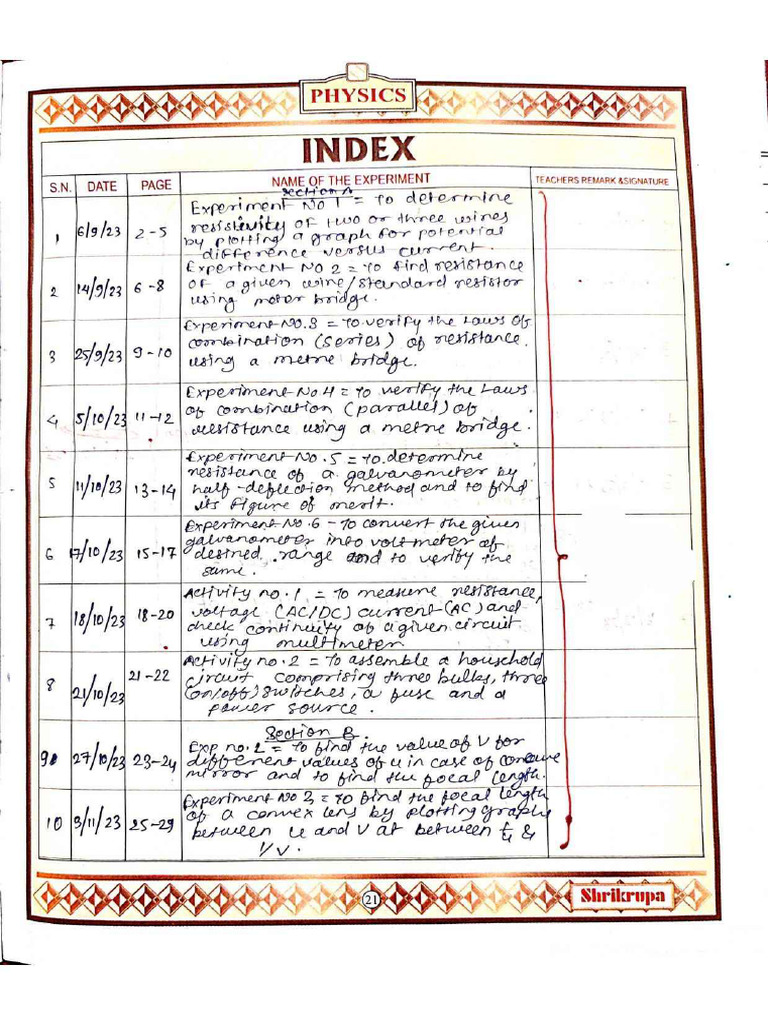 PHYSICS
INDEX
S.N. DATE PAGE NAME OF THE EXPERIMENT TEACHERS REMARK &SIGNATURE
Section A
Experiment No 1 = To determine
resistivity of two or three wires
1 6/9/23 2-5 by plotting a graph for potential
difference versus current.
Experiment No 2 = To find resistance
2 14/9/23 6-8 of a given wire/standard resistor
using meter bridge.
Experiment No.3 = To verify the Laws of
3 25/9/23 9-10 combination (series) of resistance
using a metre bridge.
Experiment No.4 = To verify the Laws
4 5/10/23 11-12 of combination (parallel) of
resistance using a metre bridge.
Experiment No.5 = To determine
5 11/10/23 13-14 resistance of a galvanometer by
half-deflection method and to find
its figure of merit.
Experiment No.6 - To convert the given
galvanometer into voltmeter of
6 17/10/23 15-17 desired range and to verify the
same.
Activity no.1 = To measure resistance,
7 18/10/23 18-20 voltage (AC/DC) current (AC) and
check continuity of a given circuit
using multimeter
Activity no.2 = To assemble a household
8 21/10/23 21-22 circuit comprising three bulbs, three
(on/off) switches, a fuse and a
power source.
Section B
Exp no.2 = To find the value of V for
9 27/10/23 23-24 different values of u in case of concave
mirror and to find the focal length.
Experiment No 3 = To find the focal length
10 3/11/23 25-29 of a convex lens by plotting graphs
between u and V at between 1/u &
1/V.
21
Shrikrupa